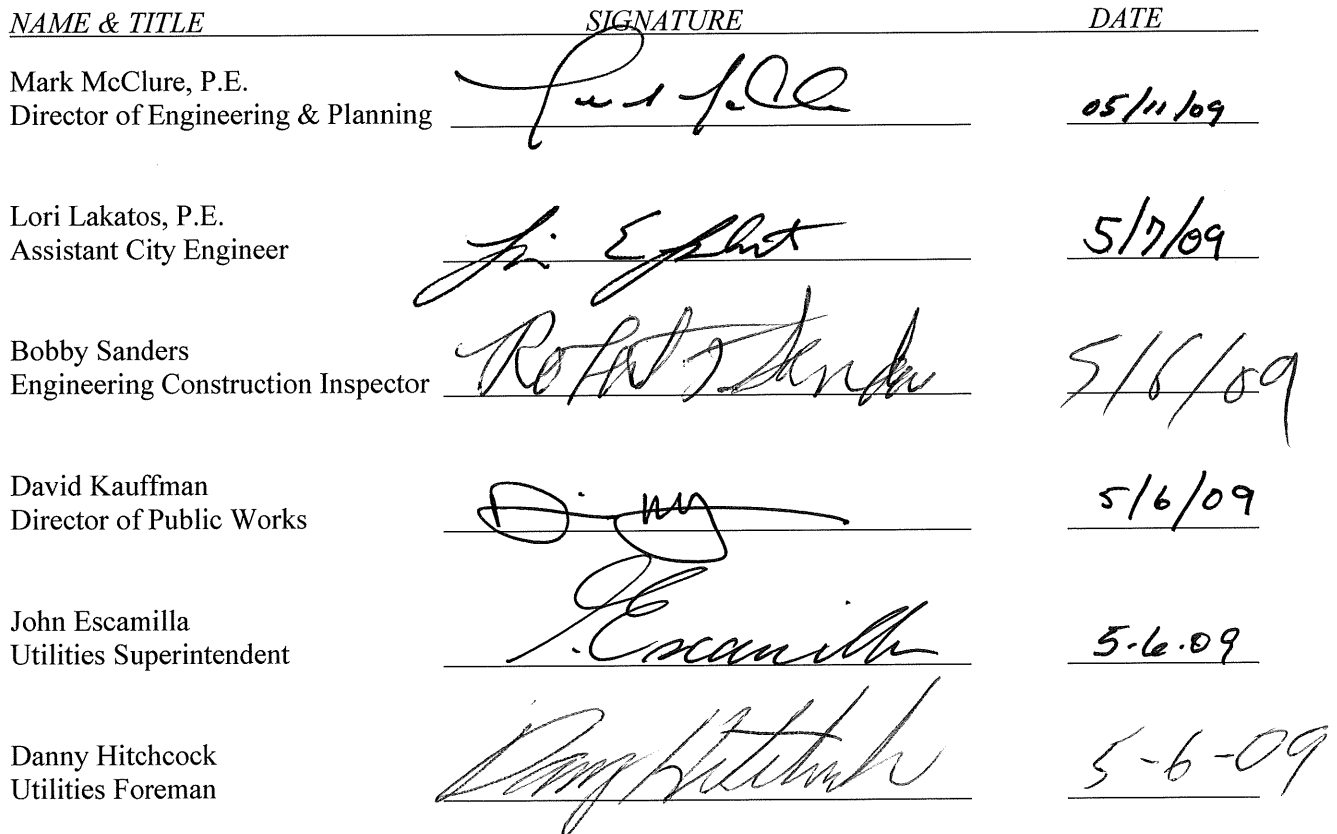 NAME & TITLE SIGNATURE DATE
Mark McClure, P.E.
Director of Engineering & Planning 05/11/09
Lori Lakatos, P.E.
Assistant City Engineer 5/7/09
Bobby Sanders
Engineering Construction Inspector Robert Sanders 5/6/09
David Kauffman
Director of Public Works 5/6/09
John Escamilla
Utilities Superintendent J. Escamilla 5-6-09
Danny Hitchcock
Utilities Foreman Danny Hitchcock 5-6-09